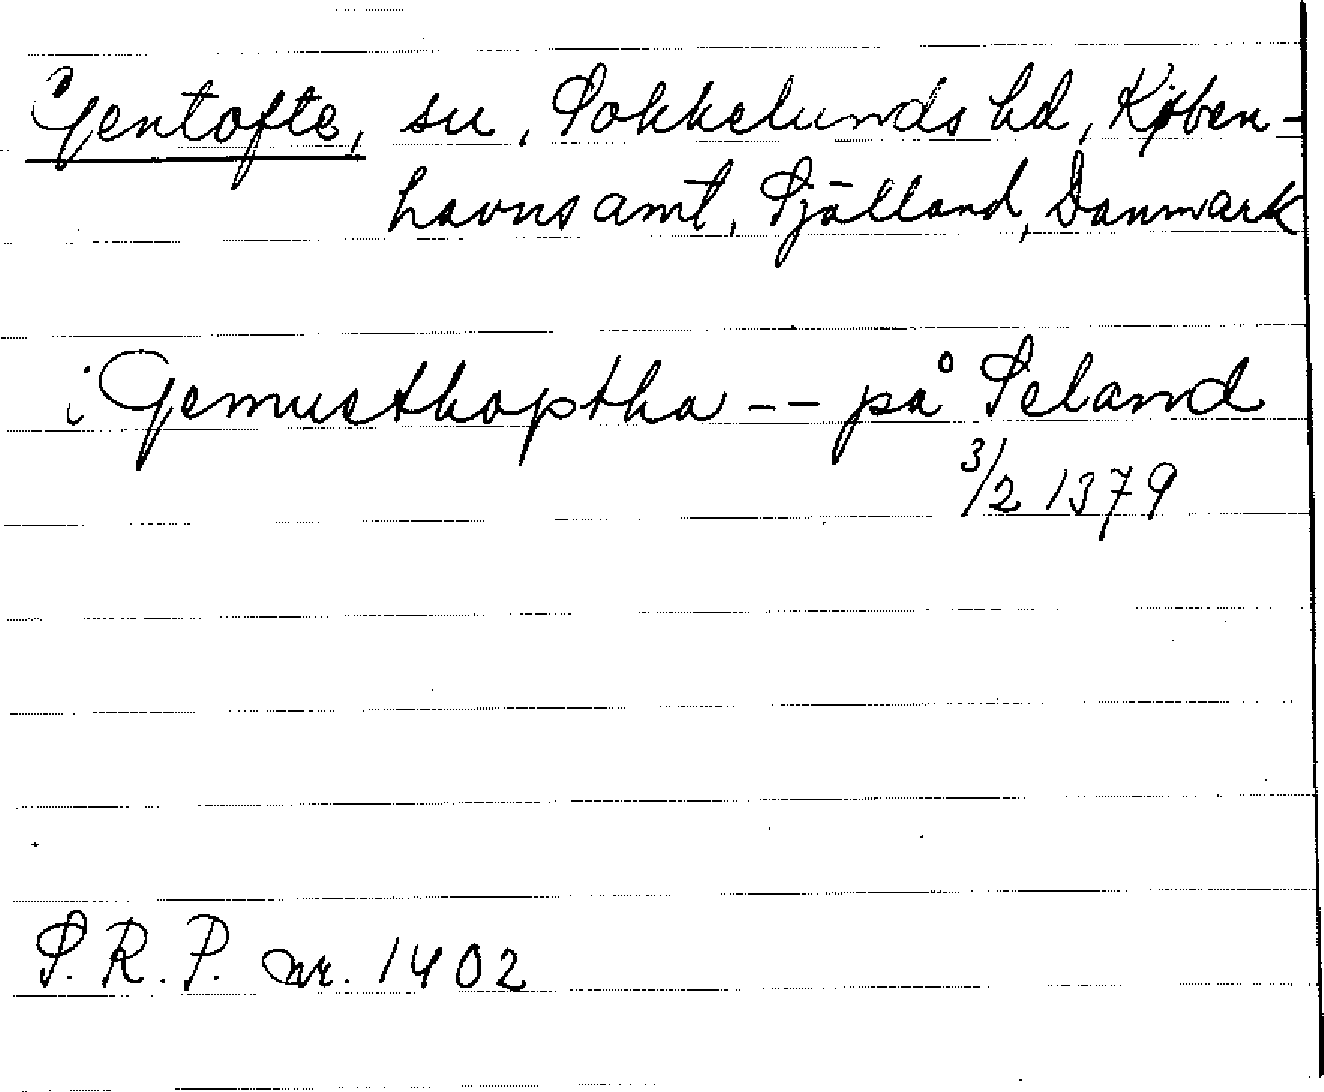 Gentofte, sn, Sokkelunds hd, Køben-
havns amt, Själland, Danmark
i Gemusthoptha -- på Seland
3/2 1379
S. R. P. nr. 1402